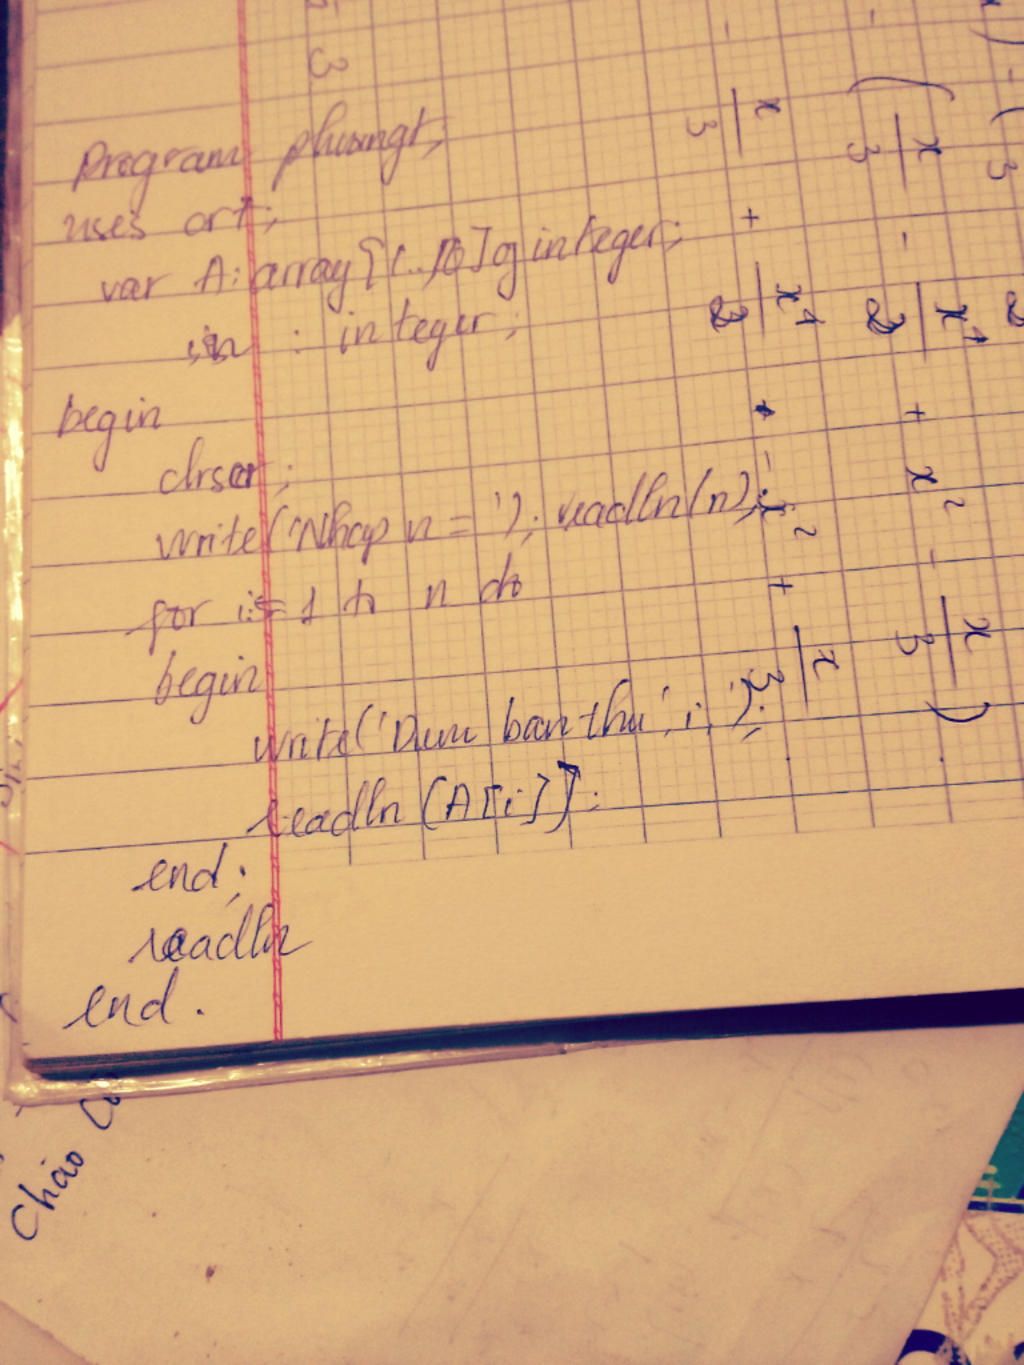 Program phuongt;
uses crt;
var A: array[1..10] of integer;
i,n : integer;
begin
clrscr;
write('Nhap n = '); readln(n);
for i:=1 to n do
begin
write('Dum ban thu', i, ');
readln(A[i]);
end;
readln
end.
3
x/3 + x⁴/2 - x² + x/3
(x/3 - x⁴/2 + x² - x/3)
Chào